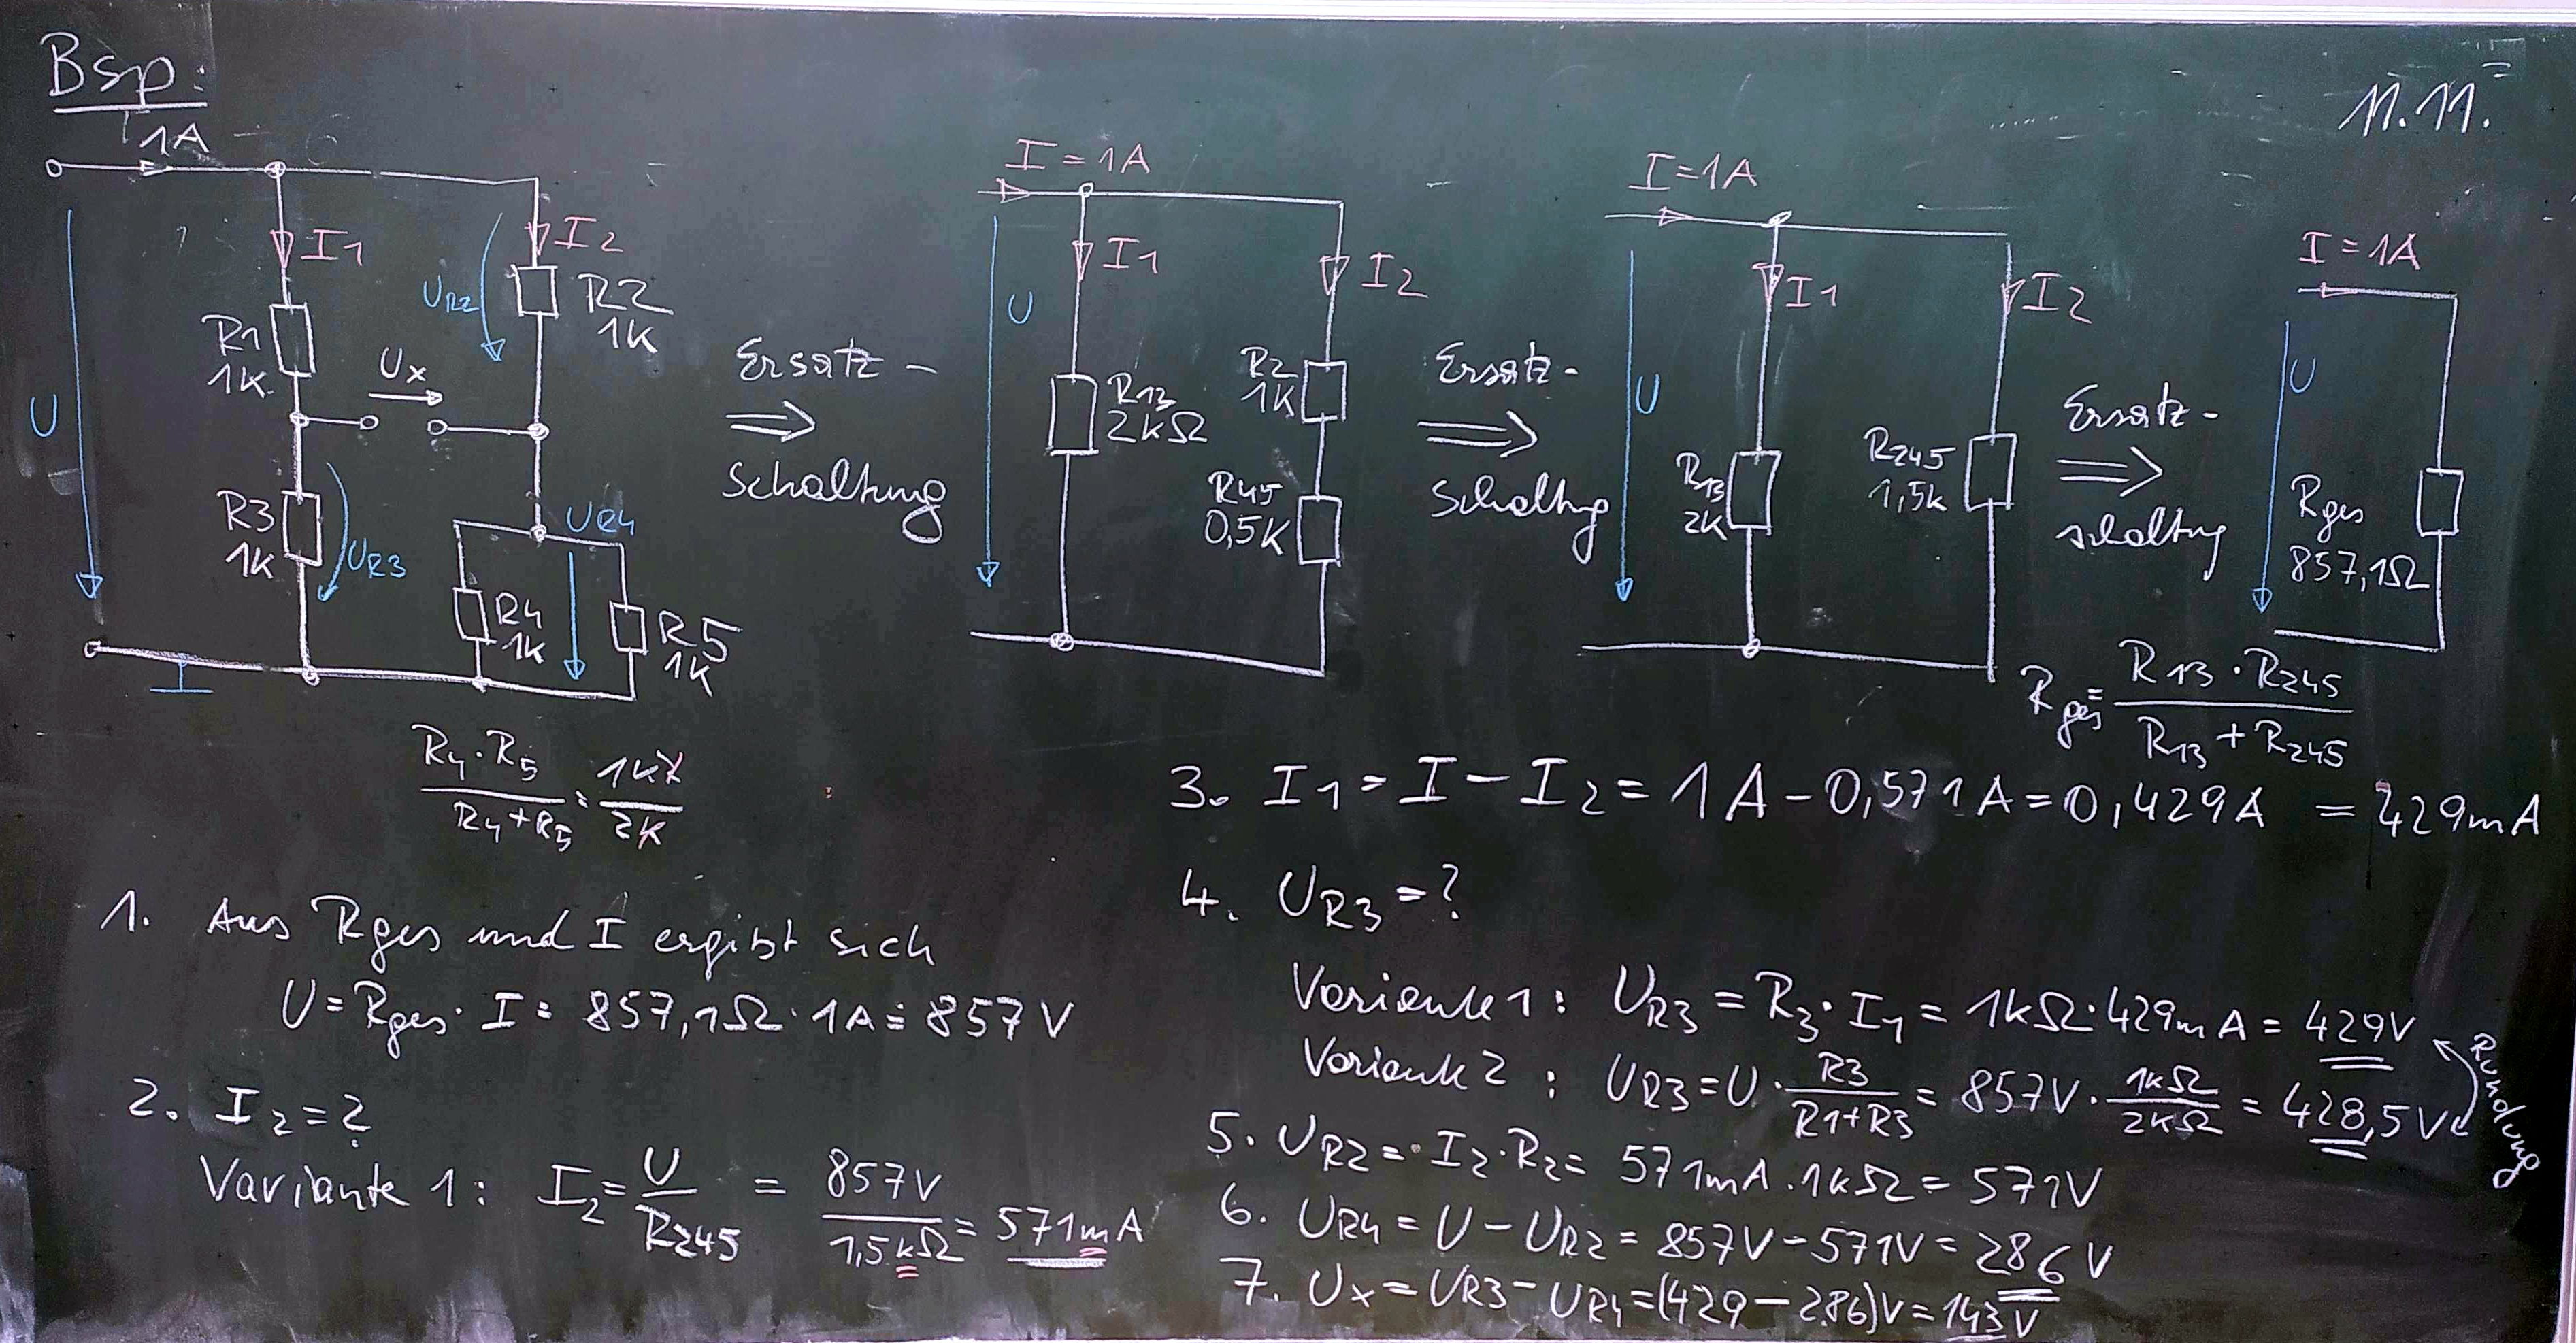 Bsp:
11.11.
1A
I1
I2
UR2
R2
1K
R1
1K
Ux
U
R3
1K
UR3
UR4
R4
1K
R5
1K
Ersatz-
⇒
Schaltung
I=1A
I1
I2
U
R13
2kΩ
R2
1K
R45
0,5K
Ersatz-
⇒
Schaltg
I=1A
I1
I2
U
R13
2K
R245
1,5k
Ersatz-
⇒
schaltg
I=1A
U
Rges
857,1Ω
Rges = (R13·R245)/(R13+R245)
(R4·R5)/(R4+R5) = 1kk/2k
1. Aus Rges und I ergibt sich
U=Rges·I= 857,1Ω·1A= 857V
2. I2=?
Variante 1: I2=U/R245 = 857V/1,5kΩ = 571mA
3. I1=I-I2=1A-0,571A=0,429A =429mA
4. UR3=?
Variante 1: UR3=R3·I1=1kΩ·429mA=429V
Variante 2: UR3=U·R3/(R1+R3)=857V·1kΩ/2kΩ=428,5V
Rundung
5. UR2=I2·R2=571mA.1kΩ=571V
6. UR4=U-UR2=857V-571V=286V
7. Ux=UR3-UR4=(429-286)V=143V